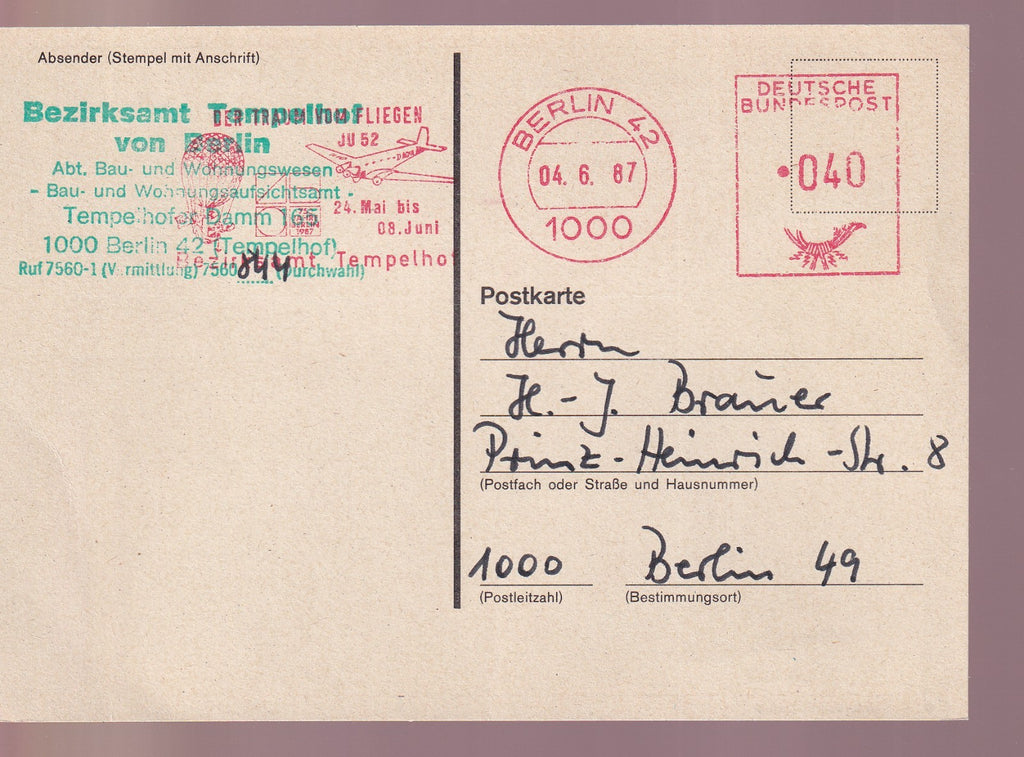 Absender (Stempel mit Anschrift)
Bezirksamt Tempelhof
von Berlin
Abt. Bau- und Wohnungswesen
- Bau- und Wohnungsaufsichtsamt -
Tempelhofer Damm 165
1000 Berlin 42 (Tempelhof)
Ruf 7560-1 (Vermittlung) 7560 844 (Durchwahl)
DER TRAUM VOM FLIEGEN
JU 52
24. Mai bis
08. Juni
BERLIN
1987
Bezirksamt Tempelhof
BERLIN 42
04. 6. 87
1000
DEUTSCHE
BUNDESPOST
040
Postkarte
Herrn
H.-J. Bräuer
Prinz-Heinrich-Str. 8
(Postfach oder Straße und Hausnummer)
1000 Berlin 49
(Postleitzahl) (Bestimmungsort)